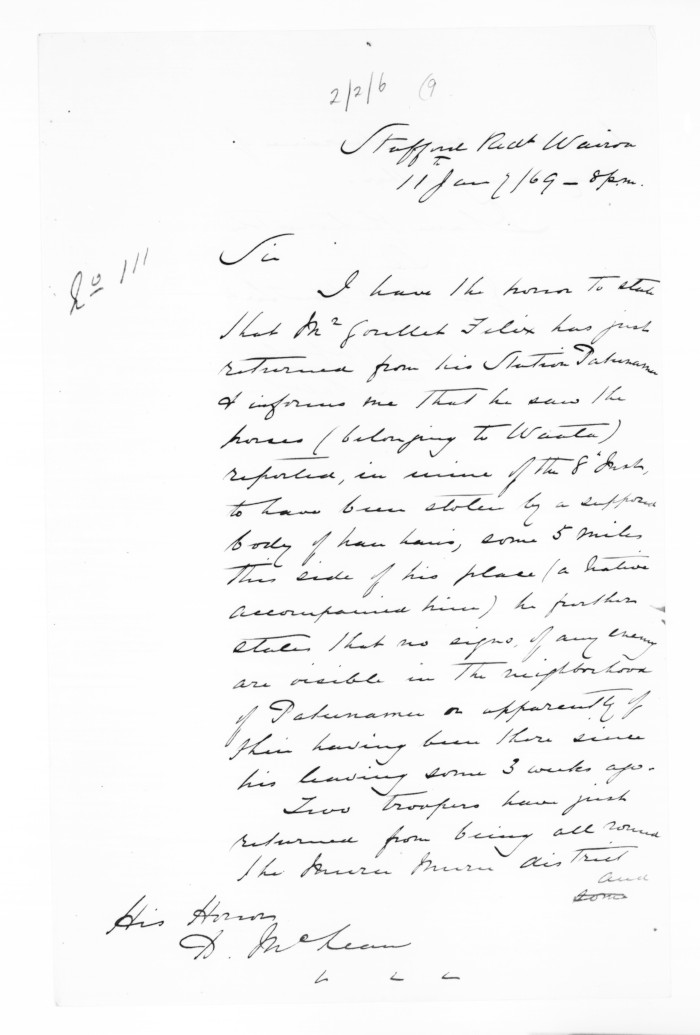 2/2/6 (9
Stafford Redt Wairoa
11th Jany/69 - 8 p.m.
No 111
Sir
I have the honor to state
that Mr Goullet Felix has just
returned from his Station Patunamu
& informs me that he saw the
horses (belonging to Waata)
reported, in mine of the 8th Inst,
to have been stolen by a supposed
body of hau haus, some 5 miles
this side of his place (a Native
accompained him) he further
states that no signs, of any enemy
are visible in the neighborhood
of Patunamu or apparently of
their having been there since
his leaving some 3 weeks ago.
Two troopers have just
returned from being all round
the Muru Muru district
and
some
His Honor
D. McLean